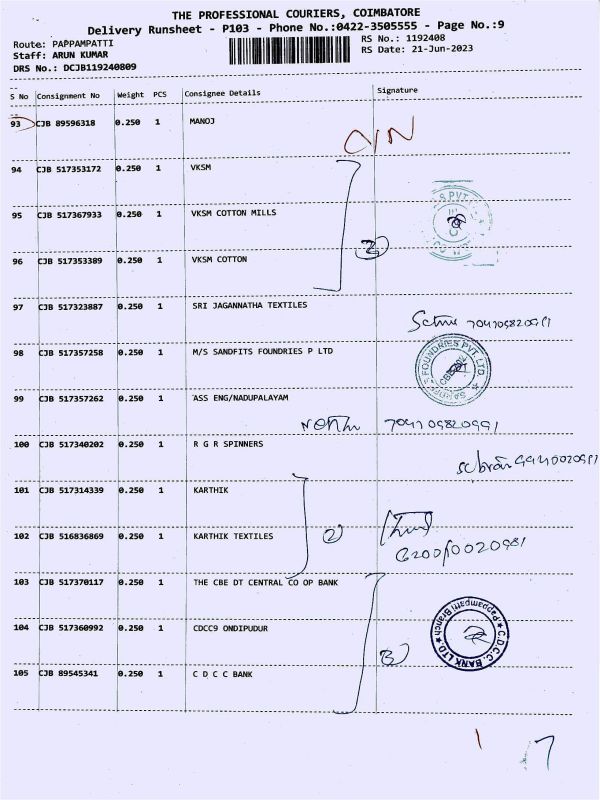 THE PROFESSIONAL COURIERS, COIMBATORE
Delivery Runsheet - P103 - Phone No.:0422-3505555 - Page No.:9
Route: PAPPAMPATTI
RS No.: 1192408
Staff: ARUN KUMAR
RS Date: 21-Jun-2023
DRS No.: DCJB119240809
S No Consignment No Weight PCS Consignee Details Signature
93 CJB 89596318 0.250 1 MANOJ
94 CJB 517353172 0.250 1 VKSM
95 CJB 517367933 0.250 1 VKSM COTTON MILLS
96 CJB 517353389 0.250 1 VKSM COTTON
2
97 CJB 517323887 0.250 1 SRI JAGANNATHA TEXTILES
98 CJB 517357258 0.250 1 M/S SANDFITS FOUNDRIES P LTD
FOUNDRIES PVT. LTD.
99 CJB 517357262 0.250 1 ASS ENG/NADUPALAYAM
100 CJB 517340202 0.250 1 R G R SPINNERS
101 CJB 517314339 0.250 1 KARTHIK
2
102 CJB 516836869 0.250 1 KARTHIK TEXTILES
103 CJB 517370117 0.250 1 THE CBE DT CENTRAL CO OP BANK
104 CJB 517360992 0.250 1 CDCC9 ONDIPUDUR
C.D.C.C. BANK LTD.
Pappampatti Branch
3
105 CJB 89545341 0.250 1 C D C C BANK